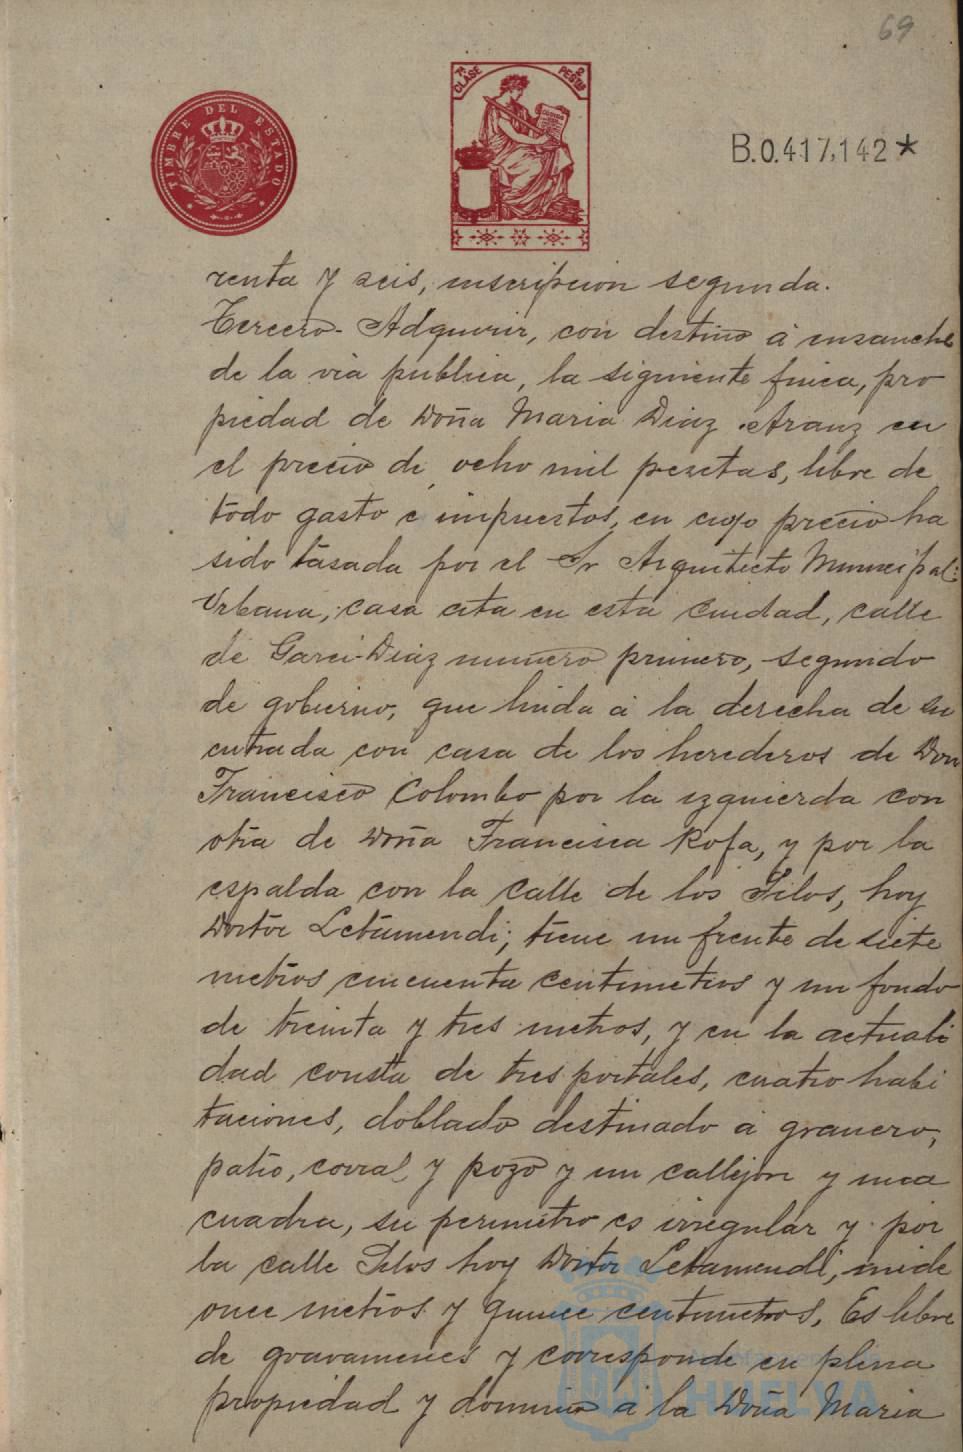 69
TIMBRE DEL ESTADO
7ª CLASE
2 PESTAS
B.0.417,142*
renta y seis, inscripcion segunda.
Tercero- Adquirir, con destino á ensanche
de la via publica, la siguiente finca, pro
piedad de Doña Maria Diaz Aranz en
el precio de ocho mil pesetas, libre de
todo gasto é impuestos, en cuyo precio ha
sido tasada por el Sr Arquitecto Municipal:
Urbana, casa cita en esta Ciudad, calle
de Garci-Diaz numero primero, segundo
de gobierno, que linda á la derecha de su
entrada con casa de los herederos de Don
Francisco Colombo por la izquierda con
otra de Doña Francisca Rofa, y por la
espalda con la calle de los Silos, hoy
Doctor Letamendi; tiene un frente de siete
metros cincuenta centimetros y un fondo
de treinta y tres metros, y en la actuali
dad consta de tres portales, cuatro habi
taciones, doblado destinado á granero,
patio, corral y pozo y un callejon y una
cuadra, su perimetro es irregular y por
la calle Silos hoy Doctor Letamendi, mide
once metros y quince centimetros, Es libre
de gravamenes y corresponde en plena
propiedad y dominio á la Doña Maria
HUELVA